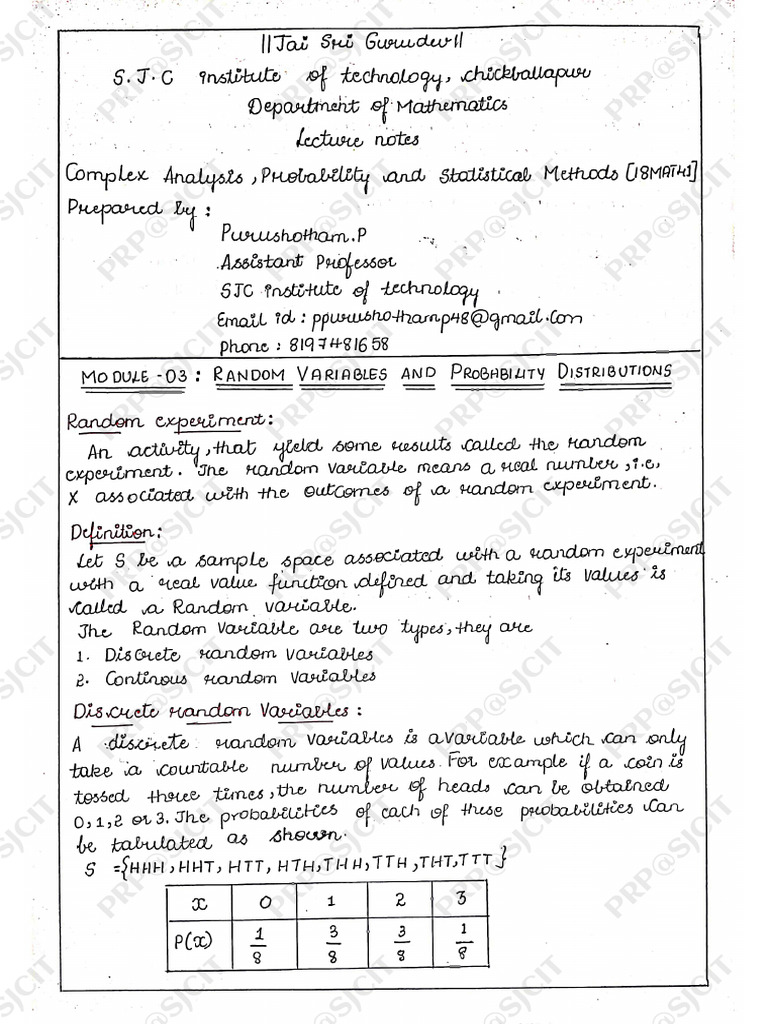 ||Jai Sri Gurudev||
S.J.C institute of technology, chickballapur
Department of Mathematics
Lecture notes
Complex Analysis, Probability and Statistical Methods [18MAT41]
Prepared by :
Purushotham.P
Assistant Professor
SJC institute of technology
Email id : ppurushothamp48@gmail.com
Phone : 8197481658
MODULE -03 : RANDOM VARIABLES AND PROBABILITY DISTRIBUTIONS
Random experiment:
An activity, that yield some results called the random
experiment. The random variable means a real number, i.e,
X associated with the outcomes of a random experiment.
Definition:
Let S be a sample space associated with a random experiment
with a real value function defined and taking its values is
called a Random variable.
The Random variable are two types, they are
1. Discrete random variables
2. Continous random variables
Discrete random variables :
A discrete random variables is a variable which can only
take a countable number of values. For example if a coin is
tossed three times, the number of heads can be obtained
0,1,2 or 3. The probabilities of each of these probabilities can
be tabulated as shown.
S = {HHH, HHT, HTT, HTH, THH, TTH, THT, TTT}
x 0 1 2 3
P(x) 1/8 3/8 3/8 1/8
PRP@SJCIT